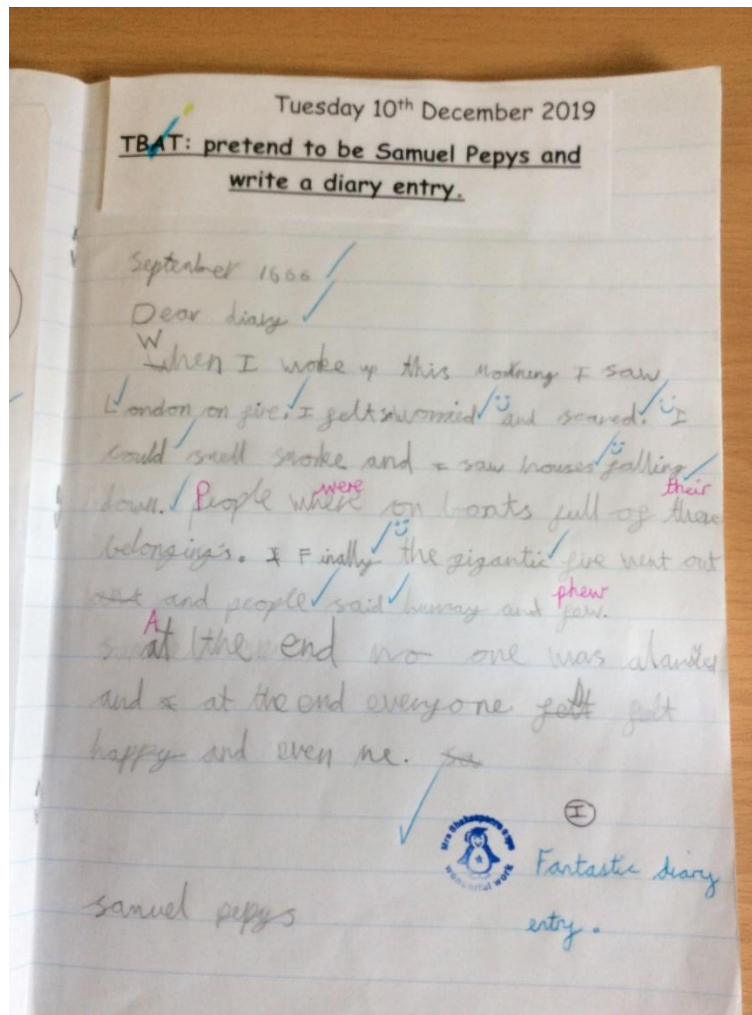 Tuesday 10th December 2019
TBAT: pretend to be Samuel Pepys and
write a diary entry.
September 1666
Dear diary
When I woke up this morning I saw
London on fire. I felt worried and scared. I
could smell smoke and I saw houses falling
down. People where were on boats full of there their
belonging's. I Finally the gigantic fire went out
and people said hurray and few. phew
At the end no one was
and at the end everyone felt felt
happy and even me. so
I
Mrs Shakespeare says
wonderful work
Fantastic diary
entry.
samuel pepys